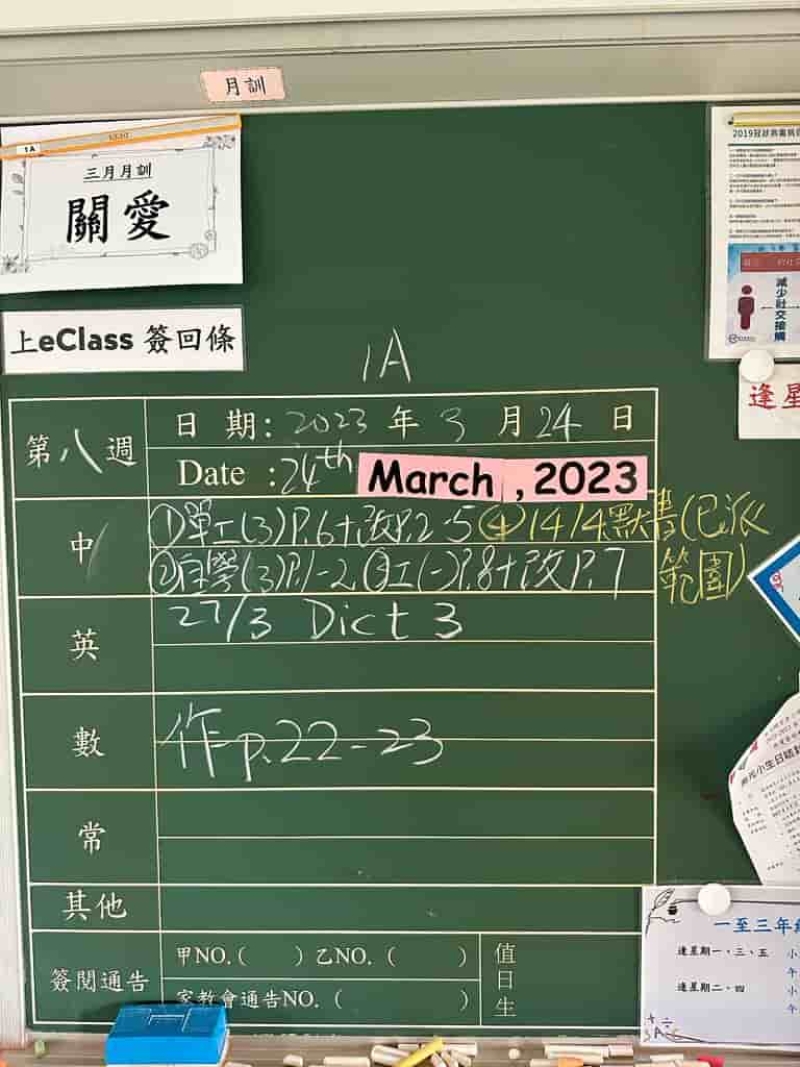 月訓
1A
三月月訓
關愛
上eClass 簽回條
1A
第八週
日 期: 2023 年 3 月 24 日
Date : 24th March , 2023
中
①單工(3)P.6+改P.2-5 ④14/4默書(已派
②自學(3)P.1-2 ③工(一)P.8+改P.7 範圍)
英
27/3 Dict 3
數
作p.22-23
常
其他
簽閱通告
甲NO.( ) 乙NO. ( )
家教會通告NO. ( )
值日生
減少社交接觸
逢星
一至三年級
逢星期一、三、五 小
午
逢星期二、四 小
午